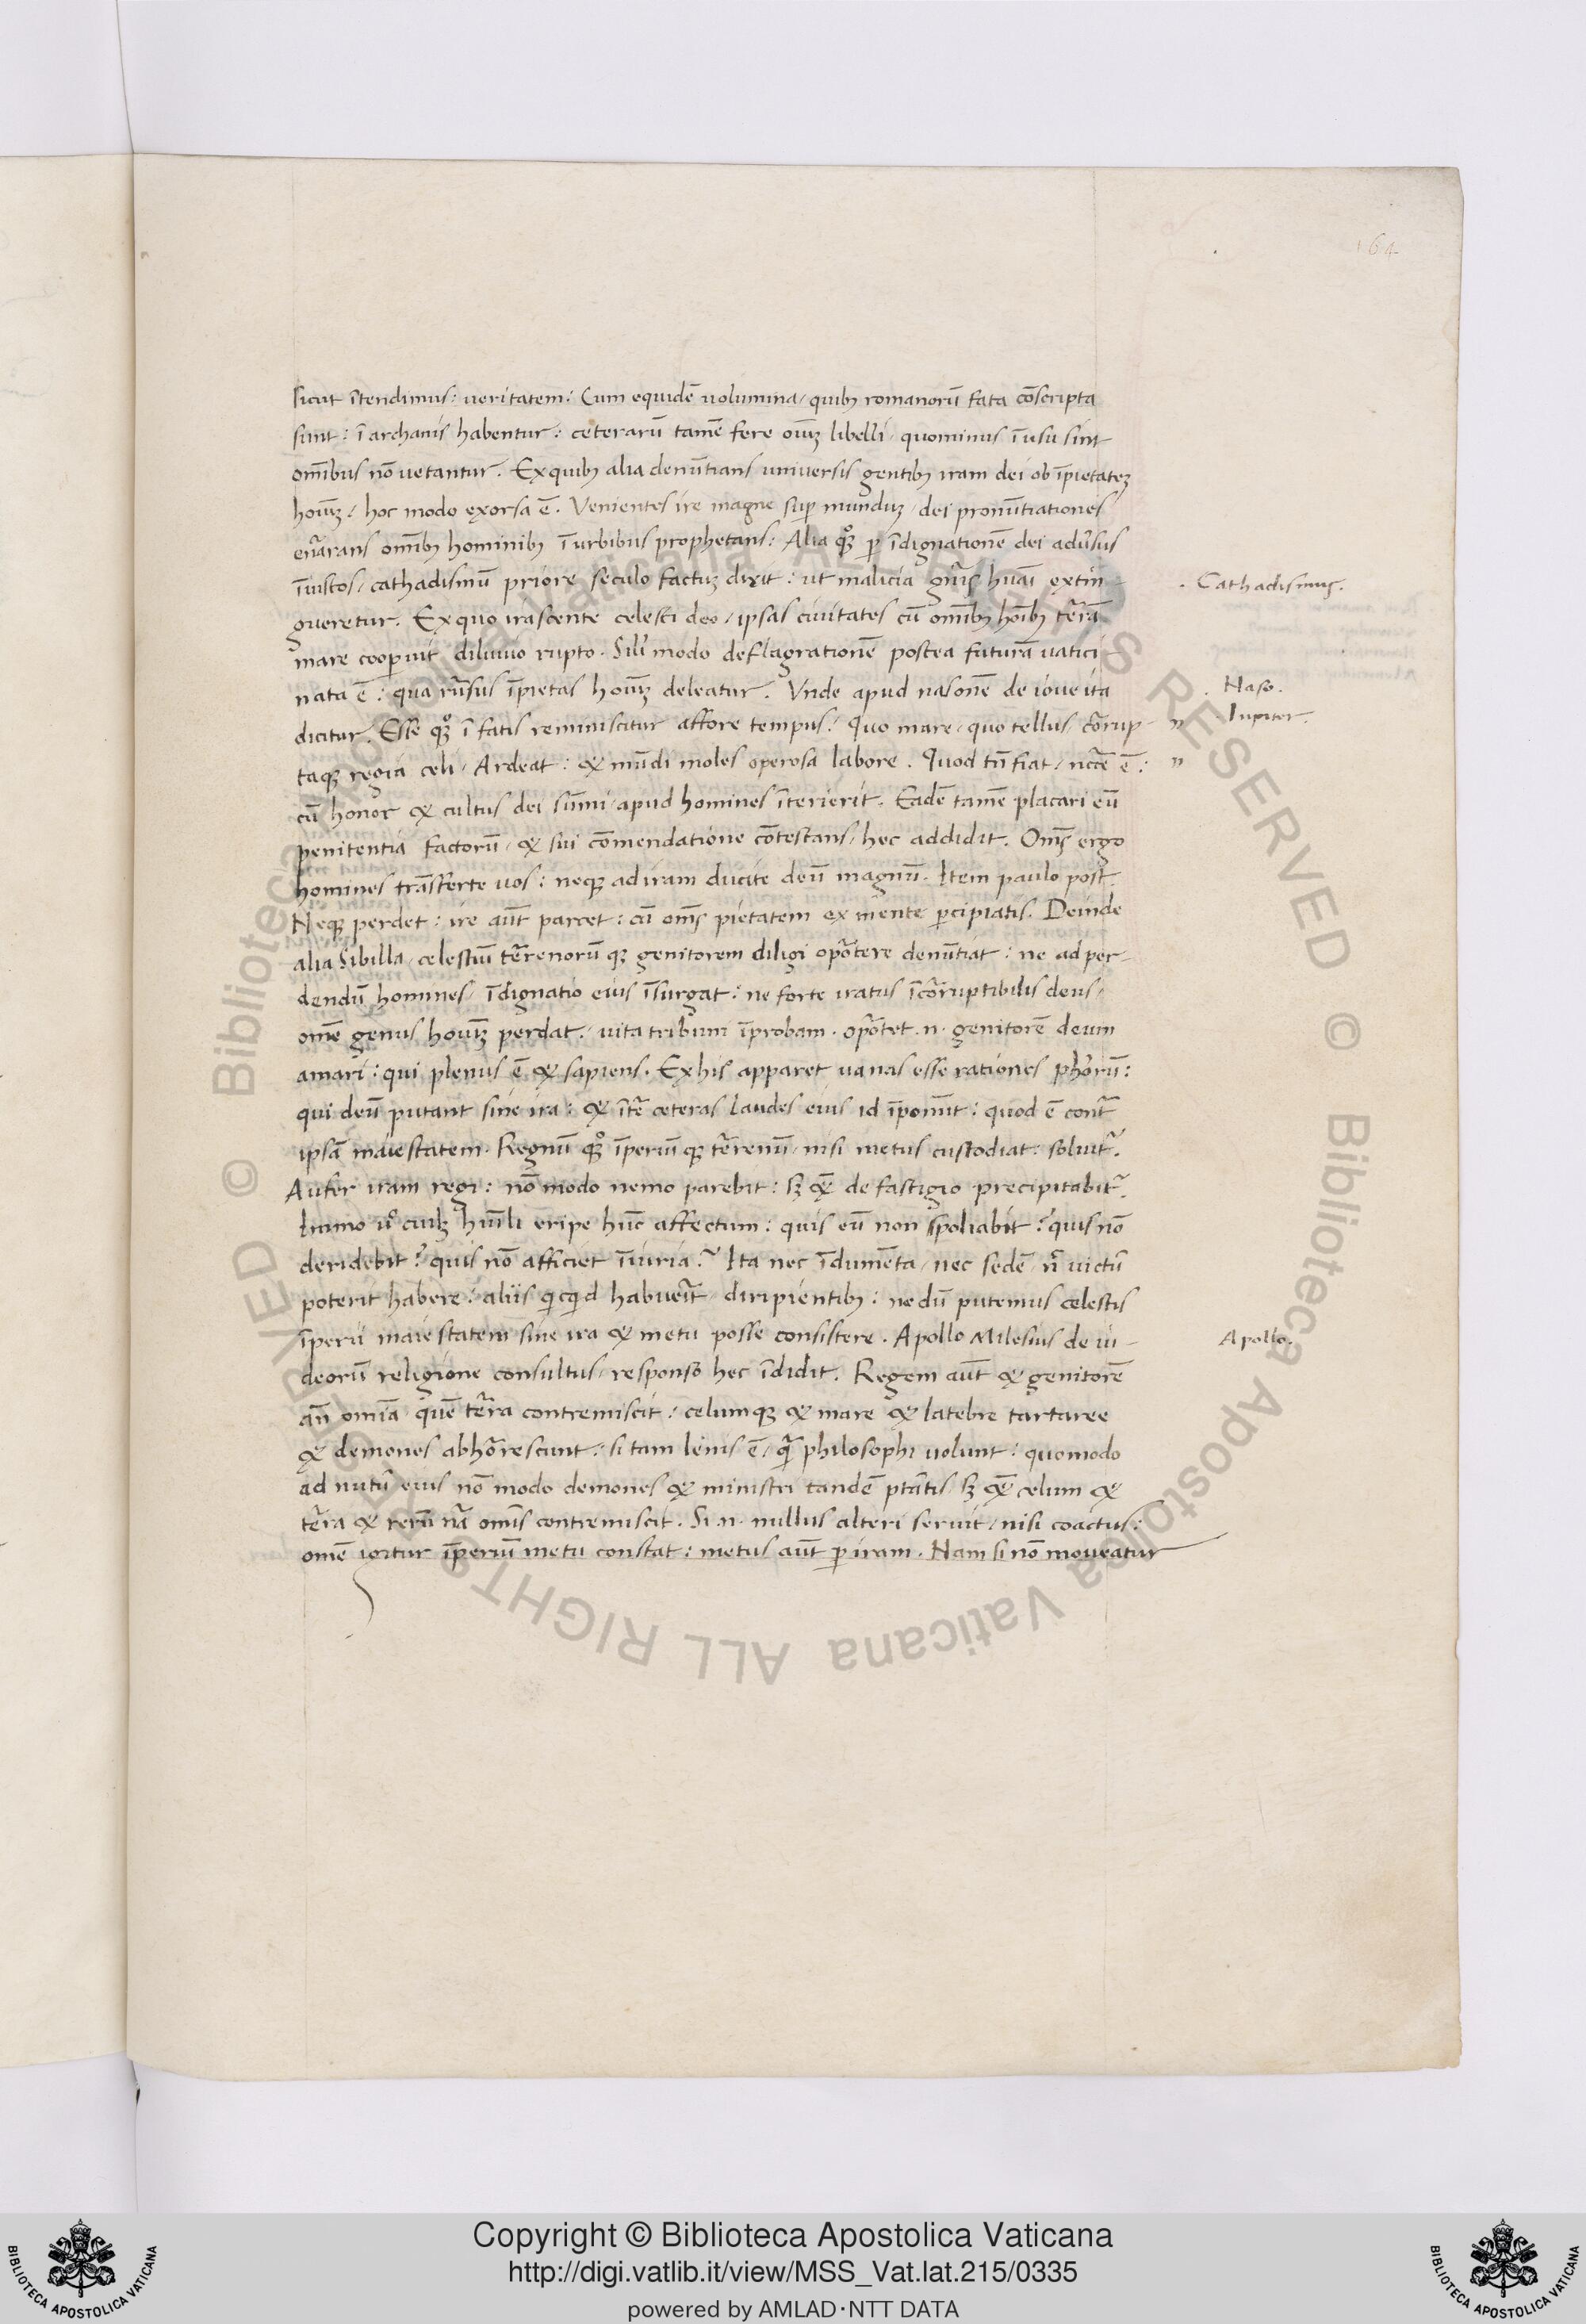 164
sicut ītendimus: veritatem: Cum equidē volumina, quibꝫ romanorū fata cōscripta
sunt: ī archanis habentur: ceterarū tamē fere oīuꝫ libelli, quominus ī usu sint
omībus nō vetantur. Ex quibꝫ alia denūtians universis gentibꝫ iram dei ob īpietateꝫ
hoīuꝫ, hoc modo exorsa ē. Venientes ire magne suꝑ munduꝫ, dei pronūtiationes
enārans omībꝫ hominibꝫ ī urbibus prophetans: Alia qꝫ̊ ꝑ īdignationē dei adv̄sus
īiustos, cathadismū priore seculo factuꝫ dixit: ut malicia gn̄is hūāi extin-
gueretur. Ex quo irascente celesti deo, ipsas civitates cū omībꝫ hoībꝫ tr̄ā
mare cooperuit diluvio rupto. Sīli modo deflagrationē postea futurā vatici-
nata ē: qua rr̄sus īpietas hoīuꝫ deleatur. Vnde apud nasonē de iove ita
dicitur. Esse qꝫ̊ ī fatis reminiscitur affore tempus, Quo mare, quo tellus, cōrrup-
taqꝫ regia celi, Ardeat: & mūdi moles operosa labore. Quod tn̄ fiat, nccē ē:
cū honor & cultus dei sūmi, apud homines īterierit. Eadē tamē placari eū
penitentia factorū, & sui cōmendatione cōtestans, hec addidit. Om̄s ergo
homines trāsferte vos: neqꝫ ad iram ducite deū magnū. Item paulo post.
Neqꝫ perdet: ire aūt parcet: cū om̄s pietatem ex mente ꝑcipiatis. Deinde
alia Sibilla, celestiū tr̄renorū qꝫ genitorem diligi opōrtere denūtiat: ne ad per-
dendū homines, īdignatio eius īsurgat: ne forte iratus īcōrruptibilis deus,
omē genus hoīuꝫ perdat, vita tribum īprobam. opōrtet .n. genitorē deum
amari: qui plenus ē & sapiens. Ex his apparet vanas esse rationes ph̄orū:
qui deū putant sine ira: & ītr̄ ceteras laudes eius id īponūt: quod ē contr̄
ipsā maiestatem. Regnū qꝫ̊ īperiū qꝫ tr̄renū, nisi metus custodiat: solvitr̄.
Aufer iram regi: nō modo nemo parebit: sꝫ &̄ de fastigio precipitabitr̄.
Immo v̊ cuilꝫ hūili eripe hūc affectum: quis eū non spoliabit? quis nō
deridebit? quis nō afficiet īiuria? Ita nec īdumēta, nec sedē, n̄ victū
poterit habere: aliis qͥcqͥd habuerīt diripientibꝫ: nedū putemus celestis
īperii maiestatem sine ira & metu posse consistere. Apollo Milesius de iu-
deorū religione consultus, responso hec īdidit. Regem aūt & genitorē
an̄ omīa quē tr̄ra contremiscit: celumqꝫ & mare & latebre tartaree
& demones abhōrrescunt: si tam lenis ē, qꝫ̄ philosophi volunt: quomodo
ad nutū eius nō modo demones & ministri tandē ptātis, sꝫ &̄ celum &
tr̄ra & rerū nā omīs contremiscit. Si .n. nullus alteri servit, nisi coactus:
omē igitur īperiū metu constat: metus aūt ꝑ iram. Nam si nō moveatur
. Cathadismus.
. Naso.
. Iupiter.
Apollo.
BIBLIOTECA APOSTOLICA VATICANA
Copyright © Biblioteca Apostolica Vaticana
http://digi.vatlib.it/view/MSS_Vat.lat.215/0335
powered by AMLAD·NTT DATA
© Biblioteca Apostolica Vaticana ALL RIGHTS RESERVED © Biblioteca Apostolica Vaticana ALL RIGHTS RESERVED